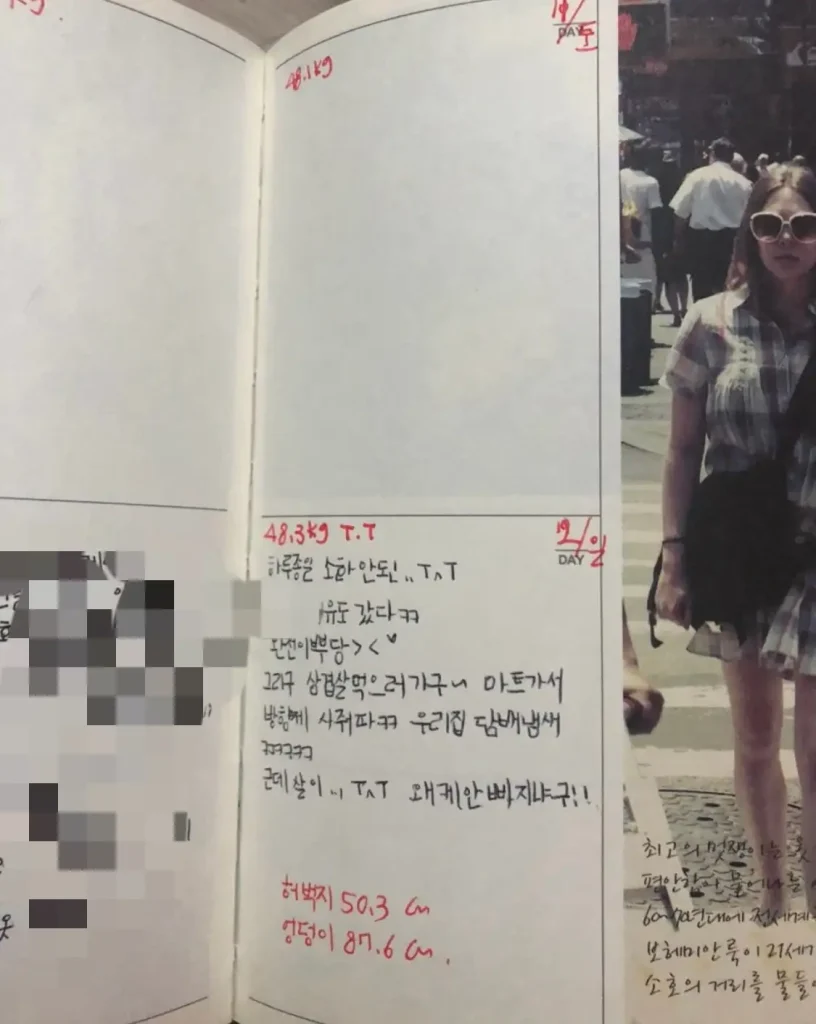 kg
48.1kg
11/토
DAY
48.3kg T.T
12/일
DAY
하루종일 소화 안되..T^T
유도 갔다ㅋㅋ
완전이뿌당><♥
그리구 삼겹살먹으러가구~ 마트가서
방향제 사줘따ㅋㅋ 우리집 담배냄새
ㅋㅋㅋㅋㅋ
근데 살이.., T^T 왜케안빠지냐구!!
허벅지 50.3 cm
엉덩이 87.6 cm.
최고의 멋쟁이는 옷
편안함이 묻어나는
60~70년대에 전세계
보헤미안 룩이 21세기
소호의 거리를 물들